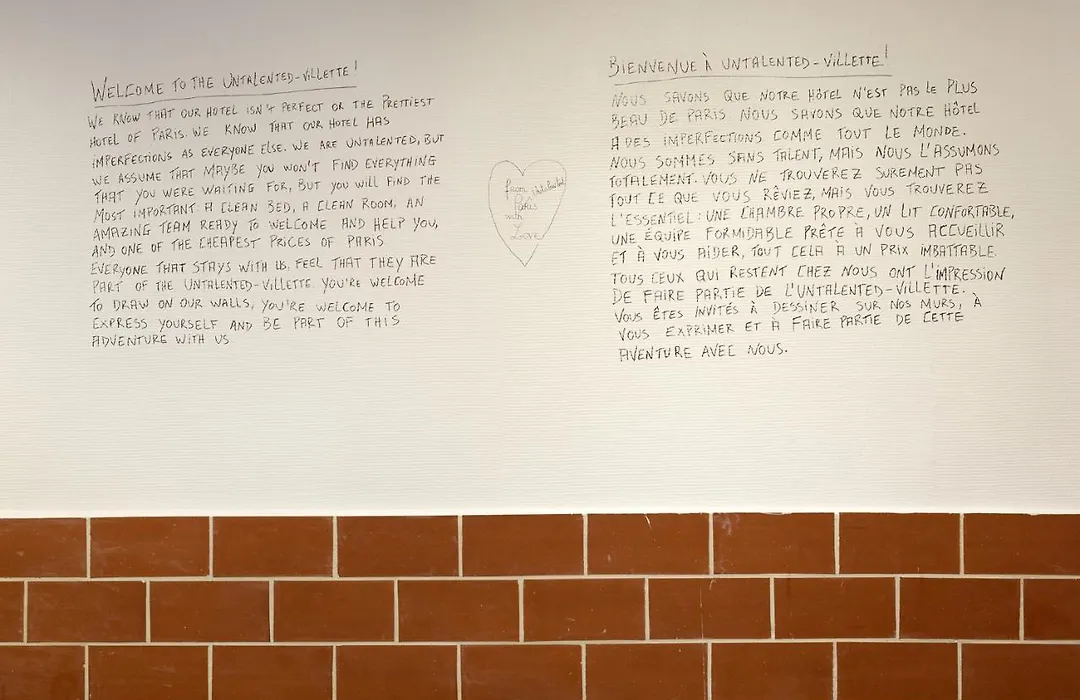 WELCOME TO THE UNTALENTED-VILLETTE!
WE KNOW THAT OUR HOTEL ISN'T PERFECT OR THE PRETTIEST
HOTEL OF PARIS. WE KNOW THAT OUR HOTEL HAS
IMPERFECTIONS AS EVERYONE ELSE. WE ARE UNTALENTED, BUT
WE ASSUME THAT MAYBE YOU WON'T FIND EVERYTHING
THAT YOU WERE WAITING FOR, BUT YOU WILL FIND THE
MOST IMPORTANT: A CLEAN BED, A CLEAN ROOM, AN
AMAZING TEAM READY TO WELCOME AND HELP YOU,
AND ONE OF THE CHEAPEST PRICES OF PARIS
EVERYONE THAT STAYS WITH US, FEEL THAT THEY ARE
PART OF THE UNTALENTED-VILLETTE. YOU'RE WELCOME
TO DRAW ON OUR WALLS, YOU'RE WELCOME TO
EXPRESS YOURSELF AND BE PART OF THIS
ADVENTURE WITH US.
from
Paris
with
Love
BIENVENUE À UNTALENTED-VILLETTE!
NOUS SAVONS QUE NOTRE HÔTEL N'EST PAS LE PLUS
BEAU DE PARIS. NOUS SAVONS QUE NOTRE HÔTEL
A DES IMPERFECTIONS COMME TOUT LE MONDE.
NOUS SOMMES SANS TALENT, MAIS NOUS L'ASSUMONS
TOTALEMENT. VOUS NE TROUVEREZ SUREMENT PAS
TOUT CE QUE VOUS RÊVIEZ, MAIS VOUS TROUVEREZ
L'ESSENTIEL: UNE CHAMBRE PROPRE, UN LIT CONFORTABLE,
UNE ÉQUIPE FORMIDABLE PRÊTE À VOUS ACCUEILLIR
ET À VOUS AIDER, TOUT CELA À UN PRIX IMBATTABLE.
TOUS CEUX QUI RESTENT CHEZ NOUS ONT L'IMPRESSION
DE FAIRE PARTIE DE L'UNTALENTED-VILLETTE.
VOUS ÊTES INVITÉS À DESSINER SUR NOS MURS, À
VOUS EXPRIMER ET À FAIRE PARTIE DE CETTE
AVENTURE AVEC NOUS.